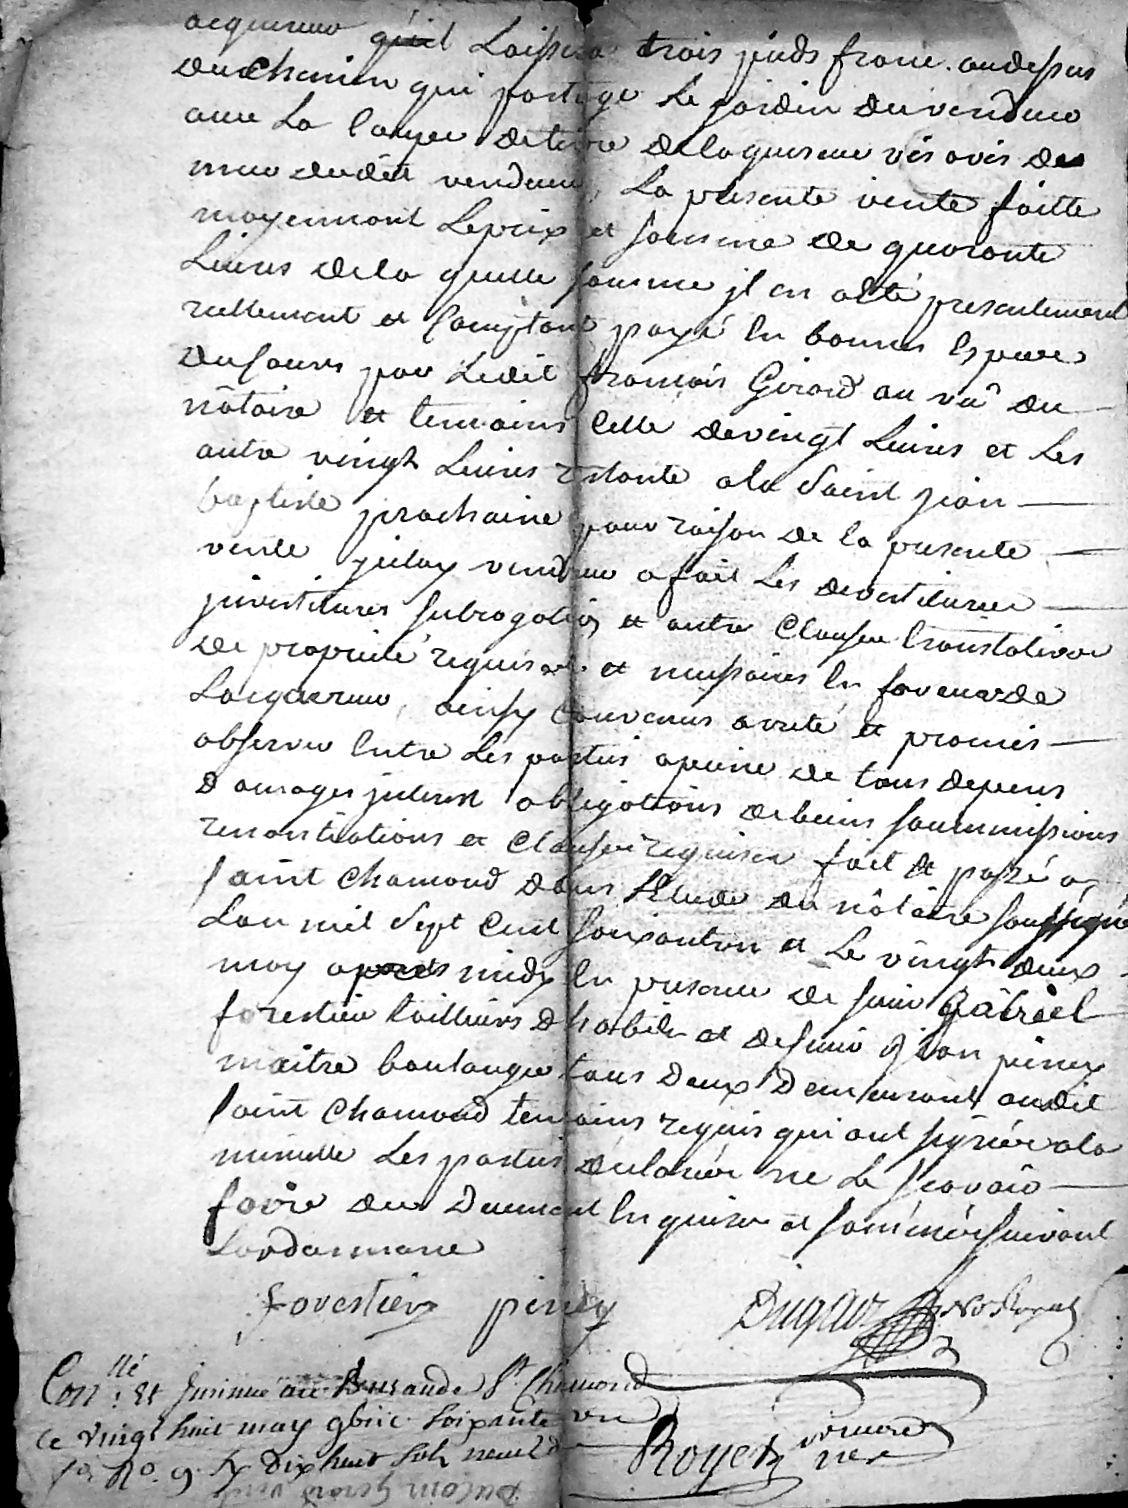 acquereur qu'il Laissera trois pieds franc. audessus
du Chemin qui partage Le jardin du vendeur
avec La terre de laquereur vis avis des
mur dudit vendeur, La presente vente faitte
moyennant Leprix et somme de quarante
Livres dela quelle somme jl en a esté presentement
reellement et Comptant payé En bonnes Especes
du Cours par Ledit francois Girard au vû du
nôtaire et temoins Celle devingt Livres et Les
autre vingt Livres restante a la Saint jean
baptiste prochaine pour raison de la presente
vente jceluy vendeur a fait Les devestitures
jnvestitures subrogations et autre Clauses translative
de proprieté requises et necessaires En faveur de
Lacquereur, ainsy Convenus areté et promis
observer Entre Les parties apeine de tous depens
Damages jnterest obligations de biens soummissions
renontiations et Clauses requises fait et passé a
saint chamond dans l'Etude du nôtaire soussigné
Lan mil Sept Cent soixante un et Le vingt deux
may apres midy En presence de sieur gâbriel
forestier tailleurs d'habits et de sieur jean piney
maitre boulanger tous deux demeurant audit
saint chamond temoins requis qui ont signés a la
minutte Les parties declarés ne Le sçavoir
faire de ce Deument Enquises et sommés suivant
Lordonnance
forestier piney Dugas No Royal
Con.llé Et jnsinué au Bureau de St. Chamond
ce vingt huit may gbiic soixante un
No. 9. dix huit sols neuf d
Royer